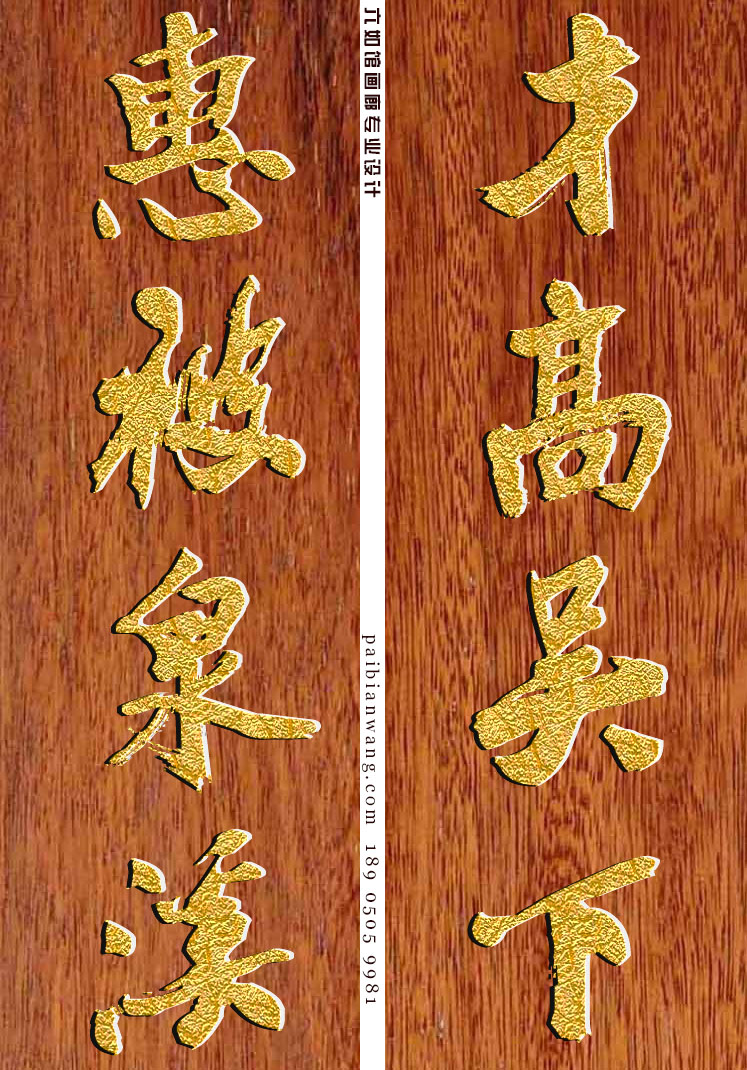 才高吴下
惠 泉溪
六如馆画廊专业设计
paibianwang.com 189 0505 9981